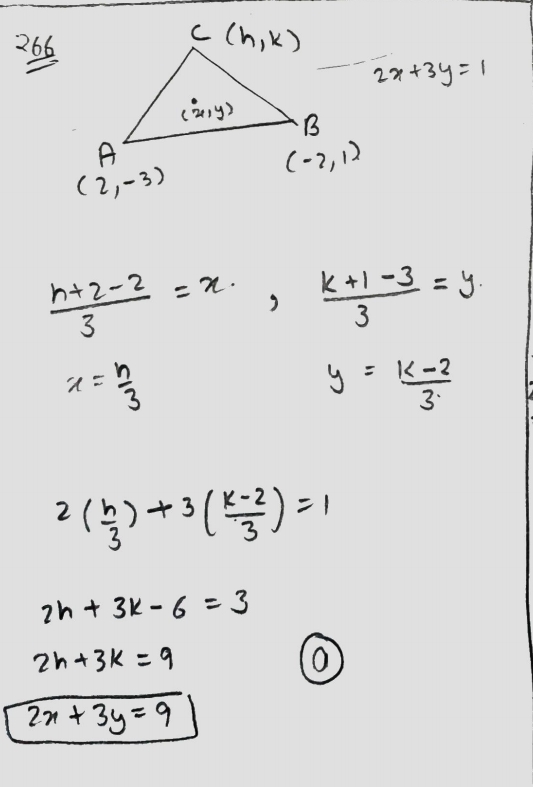 266
C (h,k)
2x+3y=1
(x,y)
A
B
(2,-3)
(-2,1)
(h+2-2)/3 = x. , (k+1-3)/3 = y.
x = h/3 y = (k-2)/3.
2(h/3) + 3((k-2)/3) = 1
2h + 3k - 6 = 3
2h + 3k = 9
0
2x + 3y = 9